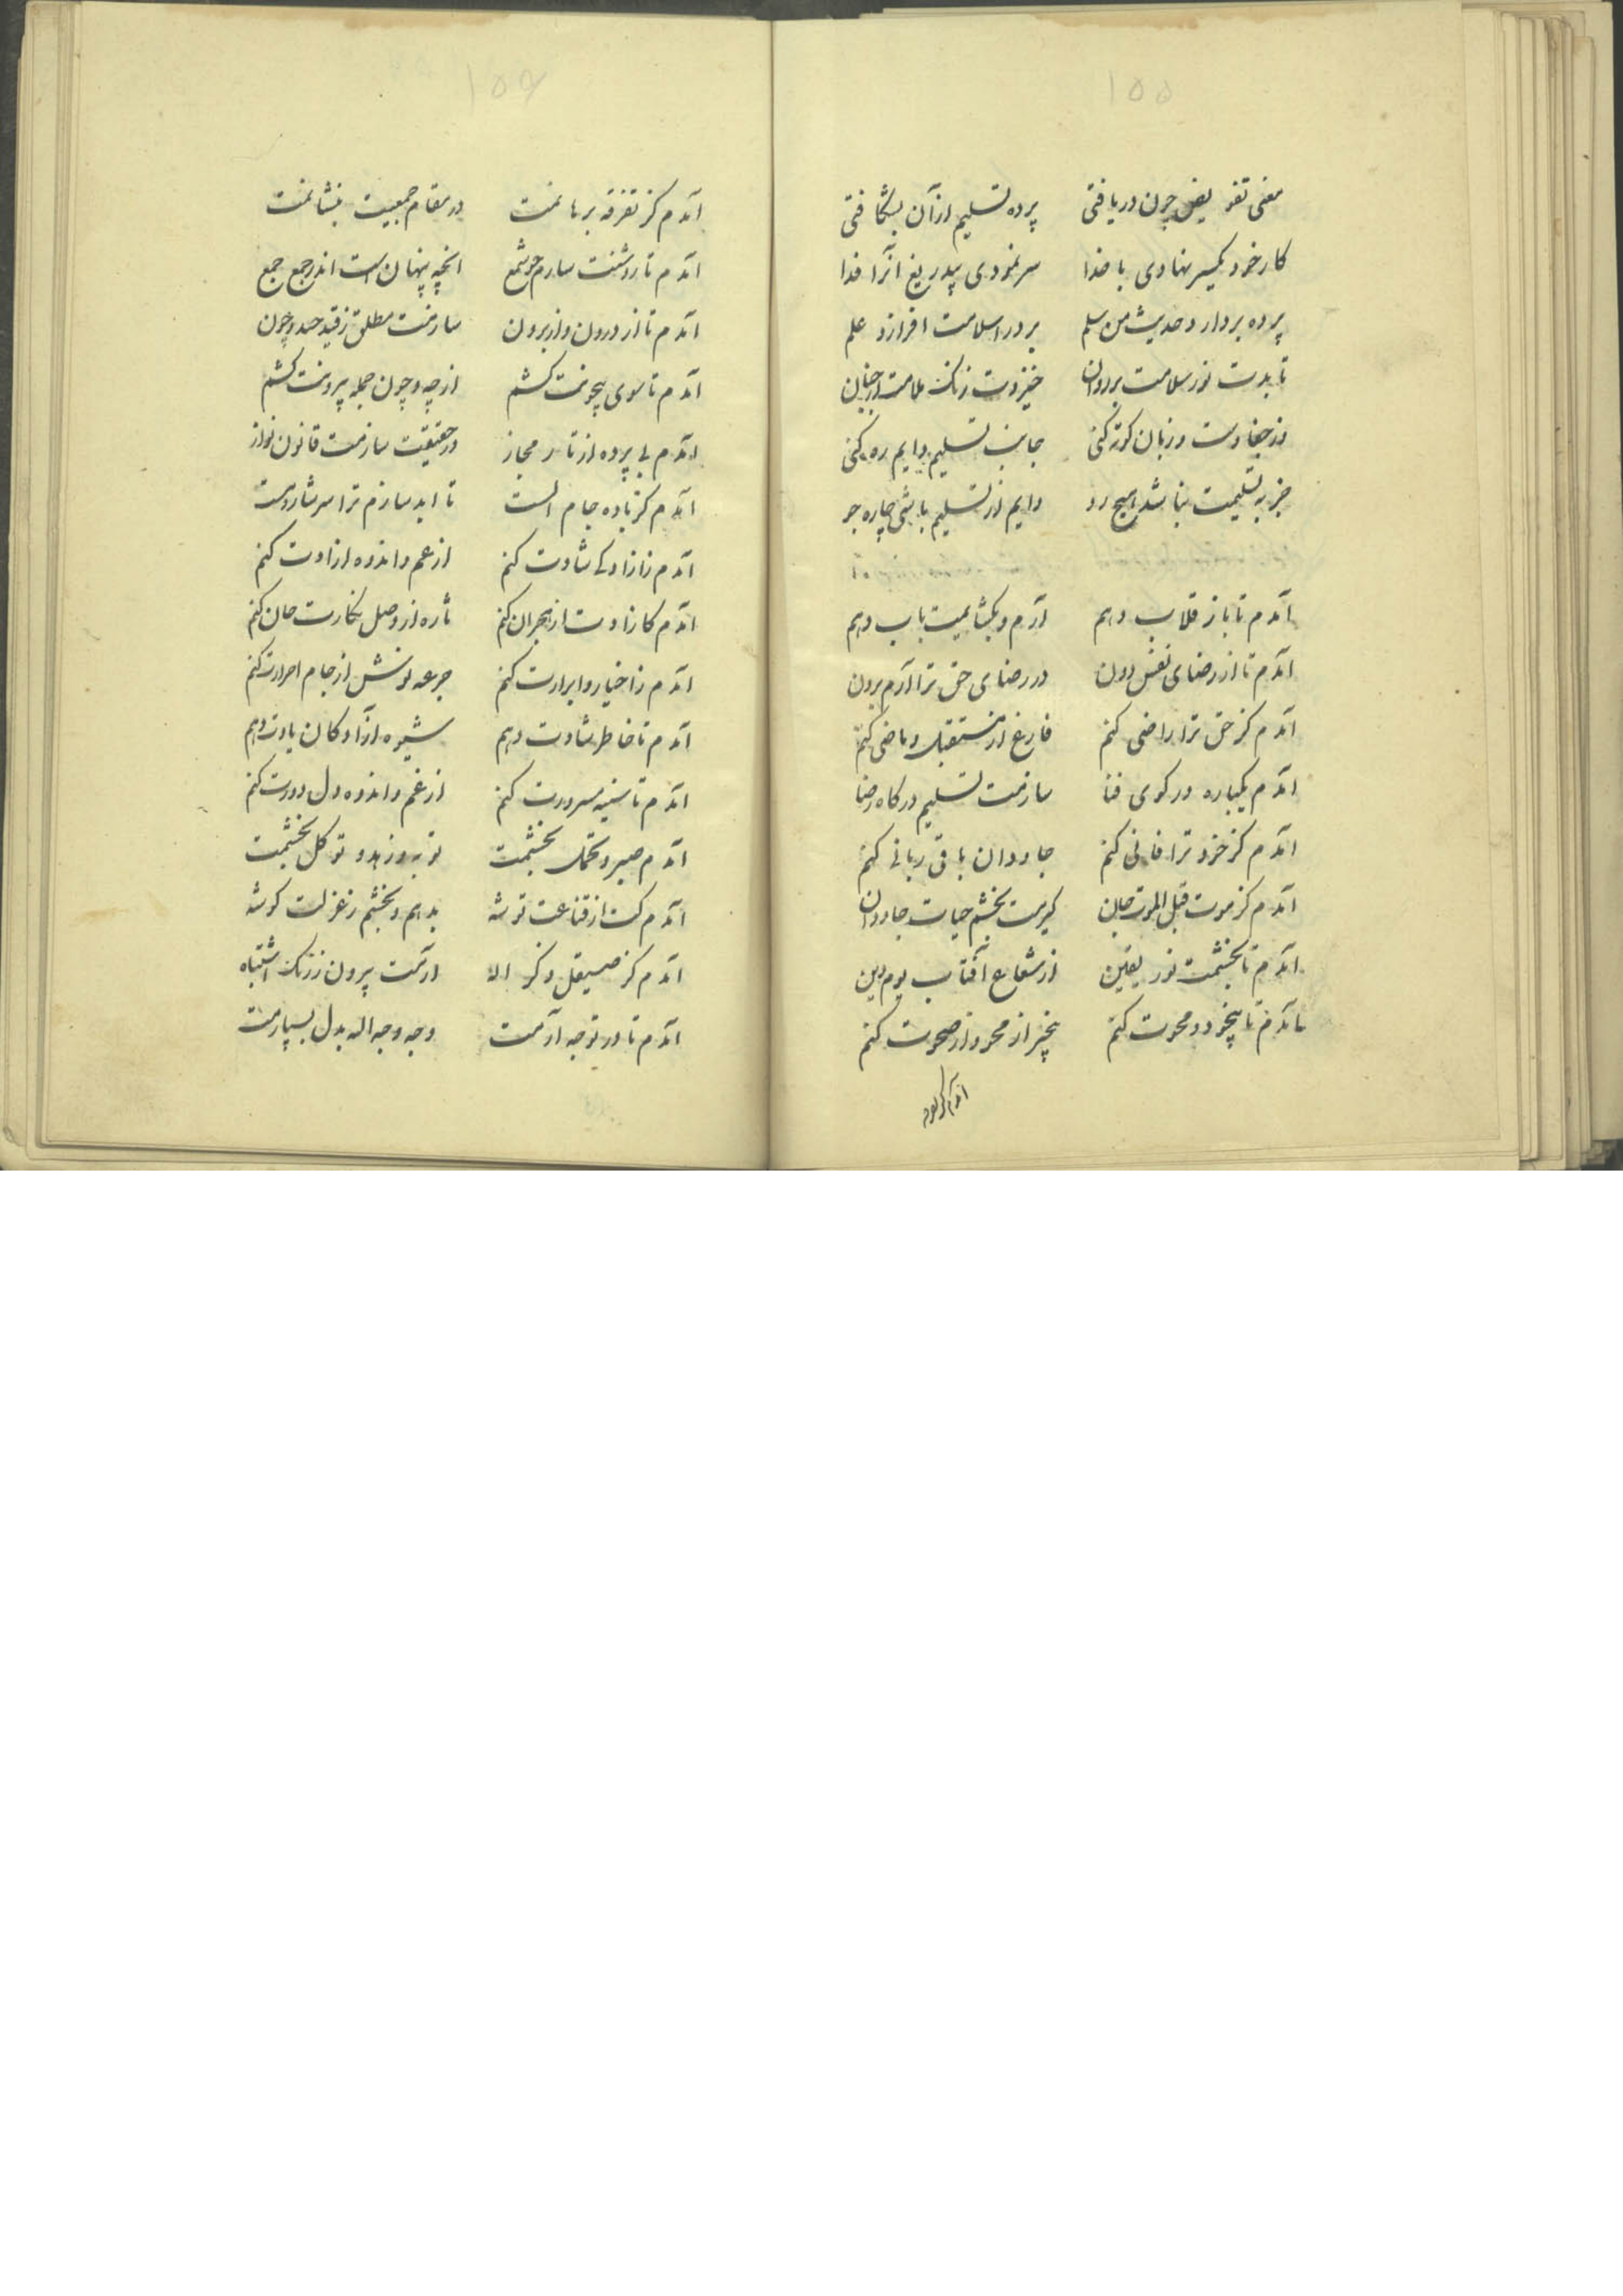 ۱۵۵
معنی تفویض چون دریافتی پرده تسلیم از آن بشکافتی
کار خود یکسر نهادی با خدا سر نمودی بیدریغ آنرا فدا
پرده بردار و حدیث من سلم بر در اسلامت افرازد علم
تابدت نور سلامت بر روان خیزدت زنک ملامت از جنان
وز جفا دست و زبان کوته کنی جانب تسلیم دایم ره کنی
جز به تسلیمیت نباشد هیچ رو دایم از تسلیم باشی چاره جو
آمدم تا باز قلاب دهم آرم و یکتا بمیت باب دهم
آمدم تا از رضای نفس دون در رضای حق ترا آرم برون
آمدم کز حق ترا راضی کنم فارغ از مستقبل و ماضی کنم
آمدم یکباره در کوی فنا سازمت تسلیم درکاه رضا
آمدم کز خود ترا فانی کنم جاودان باقی ربانی کنم
آمدم کز موت قبل الموت جان گیرمت بخشم حیات جاودان
آمدم تا بخشمت نور یقین از شعاع آفتاب یوم دین
آمدم تا بیخود و محوت کنم بیخبر از محو و از صحوت کنم
آمدم کز تفرقه
۱۵۶
آمدم کز تفرقه برهانمت در مقام جمعیت بنشانمت
آمدم تا روشنت سازم چو شمع آنچه پنهان است اندر جمع جمع
آمدم تا از درون و از برون سازمت مطلق ز قید چند و چون
آمدم تا سوی بیچونت کشم از چه و چون جمله بیرونت کشم
آمدم بی پرده از تار مجاز در حقیقت سازمت قانون نواز
آمدم کز باده جام الست تا ابد سازم ترا سرشار و مست
آمدم ز ازادکی شادت کنم از غم و اندوه ازادت کنم
آمدم کازادت از هجران کنم تازه از وصل نکارت جان کنم
آمدم ز اخیار و ابرارت کنم جرعه نوش از جام احرارت کنم
آمدم تا خاطر شادت دهم شیوه آزادکان یادت دهم
آمدم تا سینه مسرورت کنم از غم و اندوه دل دورت کنم
آمدم صبر و تحمل بخشمت توبه و زهد و توکل بخشمت
آمدم کت از قناعت توشه بدهم و بخشم ز عزلت کوشه
آمدم کز صیقل ذکر اله آرمت بیرون ز زنک اشتباه
آمدم تا در توجه آرمت وجه وجه اله بدل بسپارمت